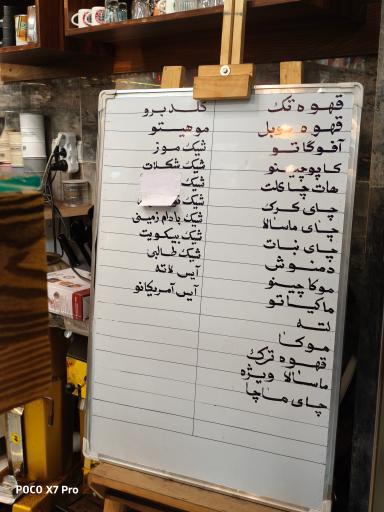 قهوه تک
قهوه دوبل
آفوگاتو
کاپوچینو
هات چاکلت
چای کرک
چای ماسالا
چای نبات
دمنوش
موکاچینو
ماکیاتو
لته
موکا
قهوه ترک
ماسالا ویژه
چای ماچا
کلدبرو
موهیتو
شیک موز
شیک شکلات
شیک
شیک
شیک بادام زمینی
شیک بیسکویت
شیک طالبی
آیس لاته
آیس آمریکانو
POCO X7 Pro